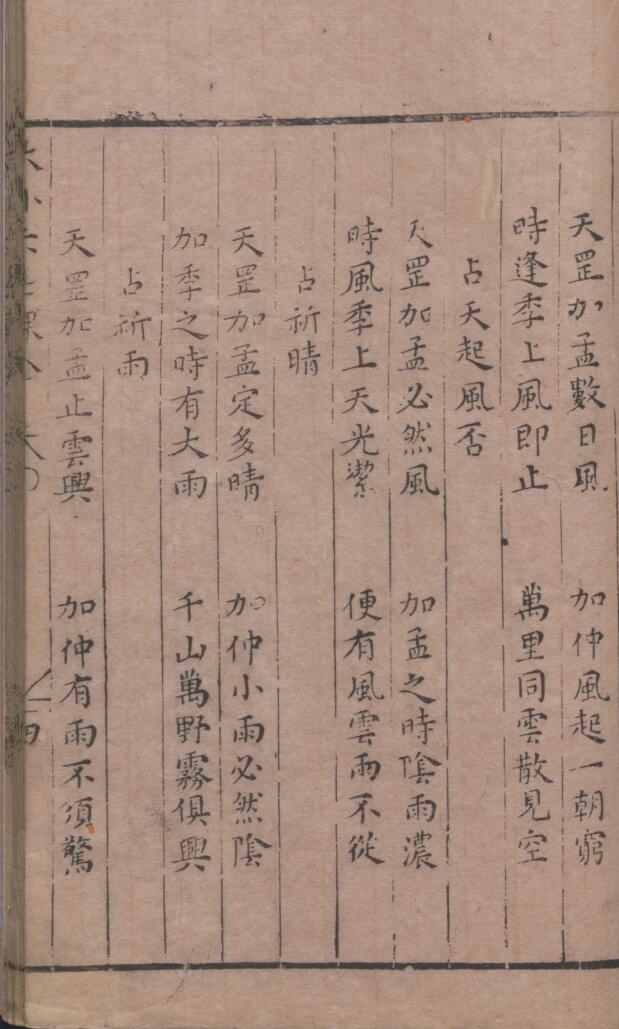 天罡加孟數日風　加仲風起一朝窮
時逢季上風即止　萬里同雲散見空
占天起風否
天罡加孟必然風　加孟之時陰雨濃
時風季上天光潔　便有風雲雨不從
占祈晴
天罡加孟定多晴　加仲小雨必然陰
加季之時有大雨　千山萬野霧俱興
占祈雨
天罡加孟止雲興　加仲有雨不須驚